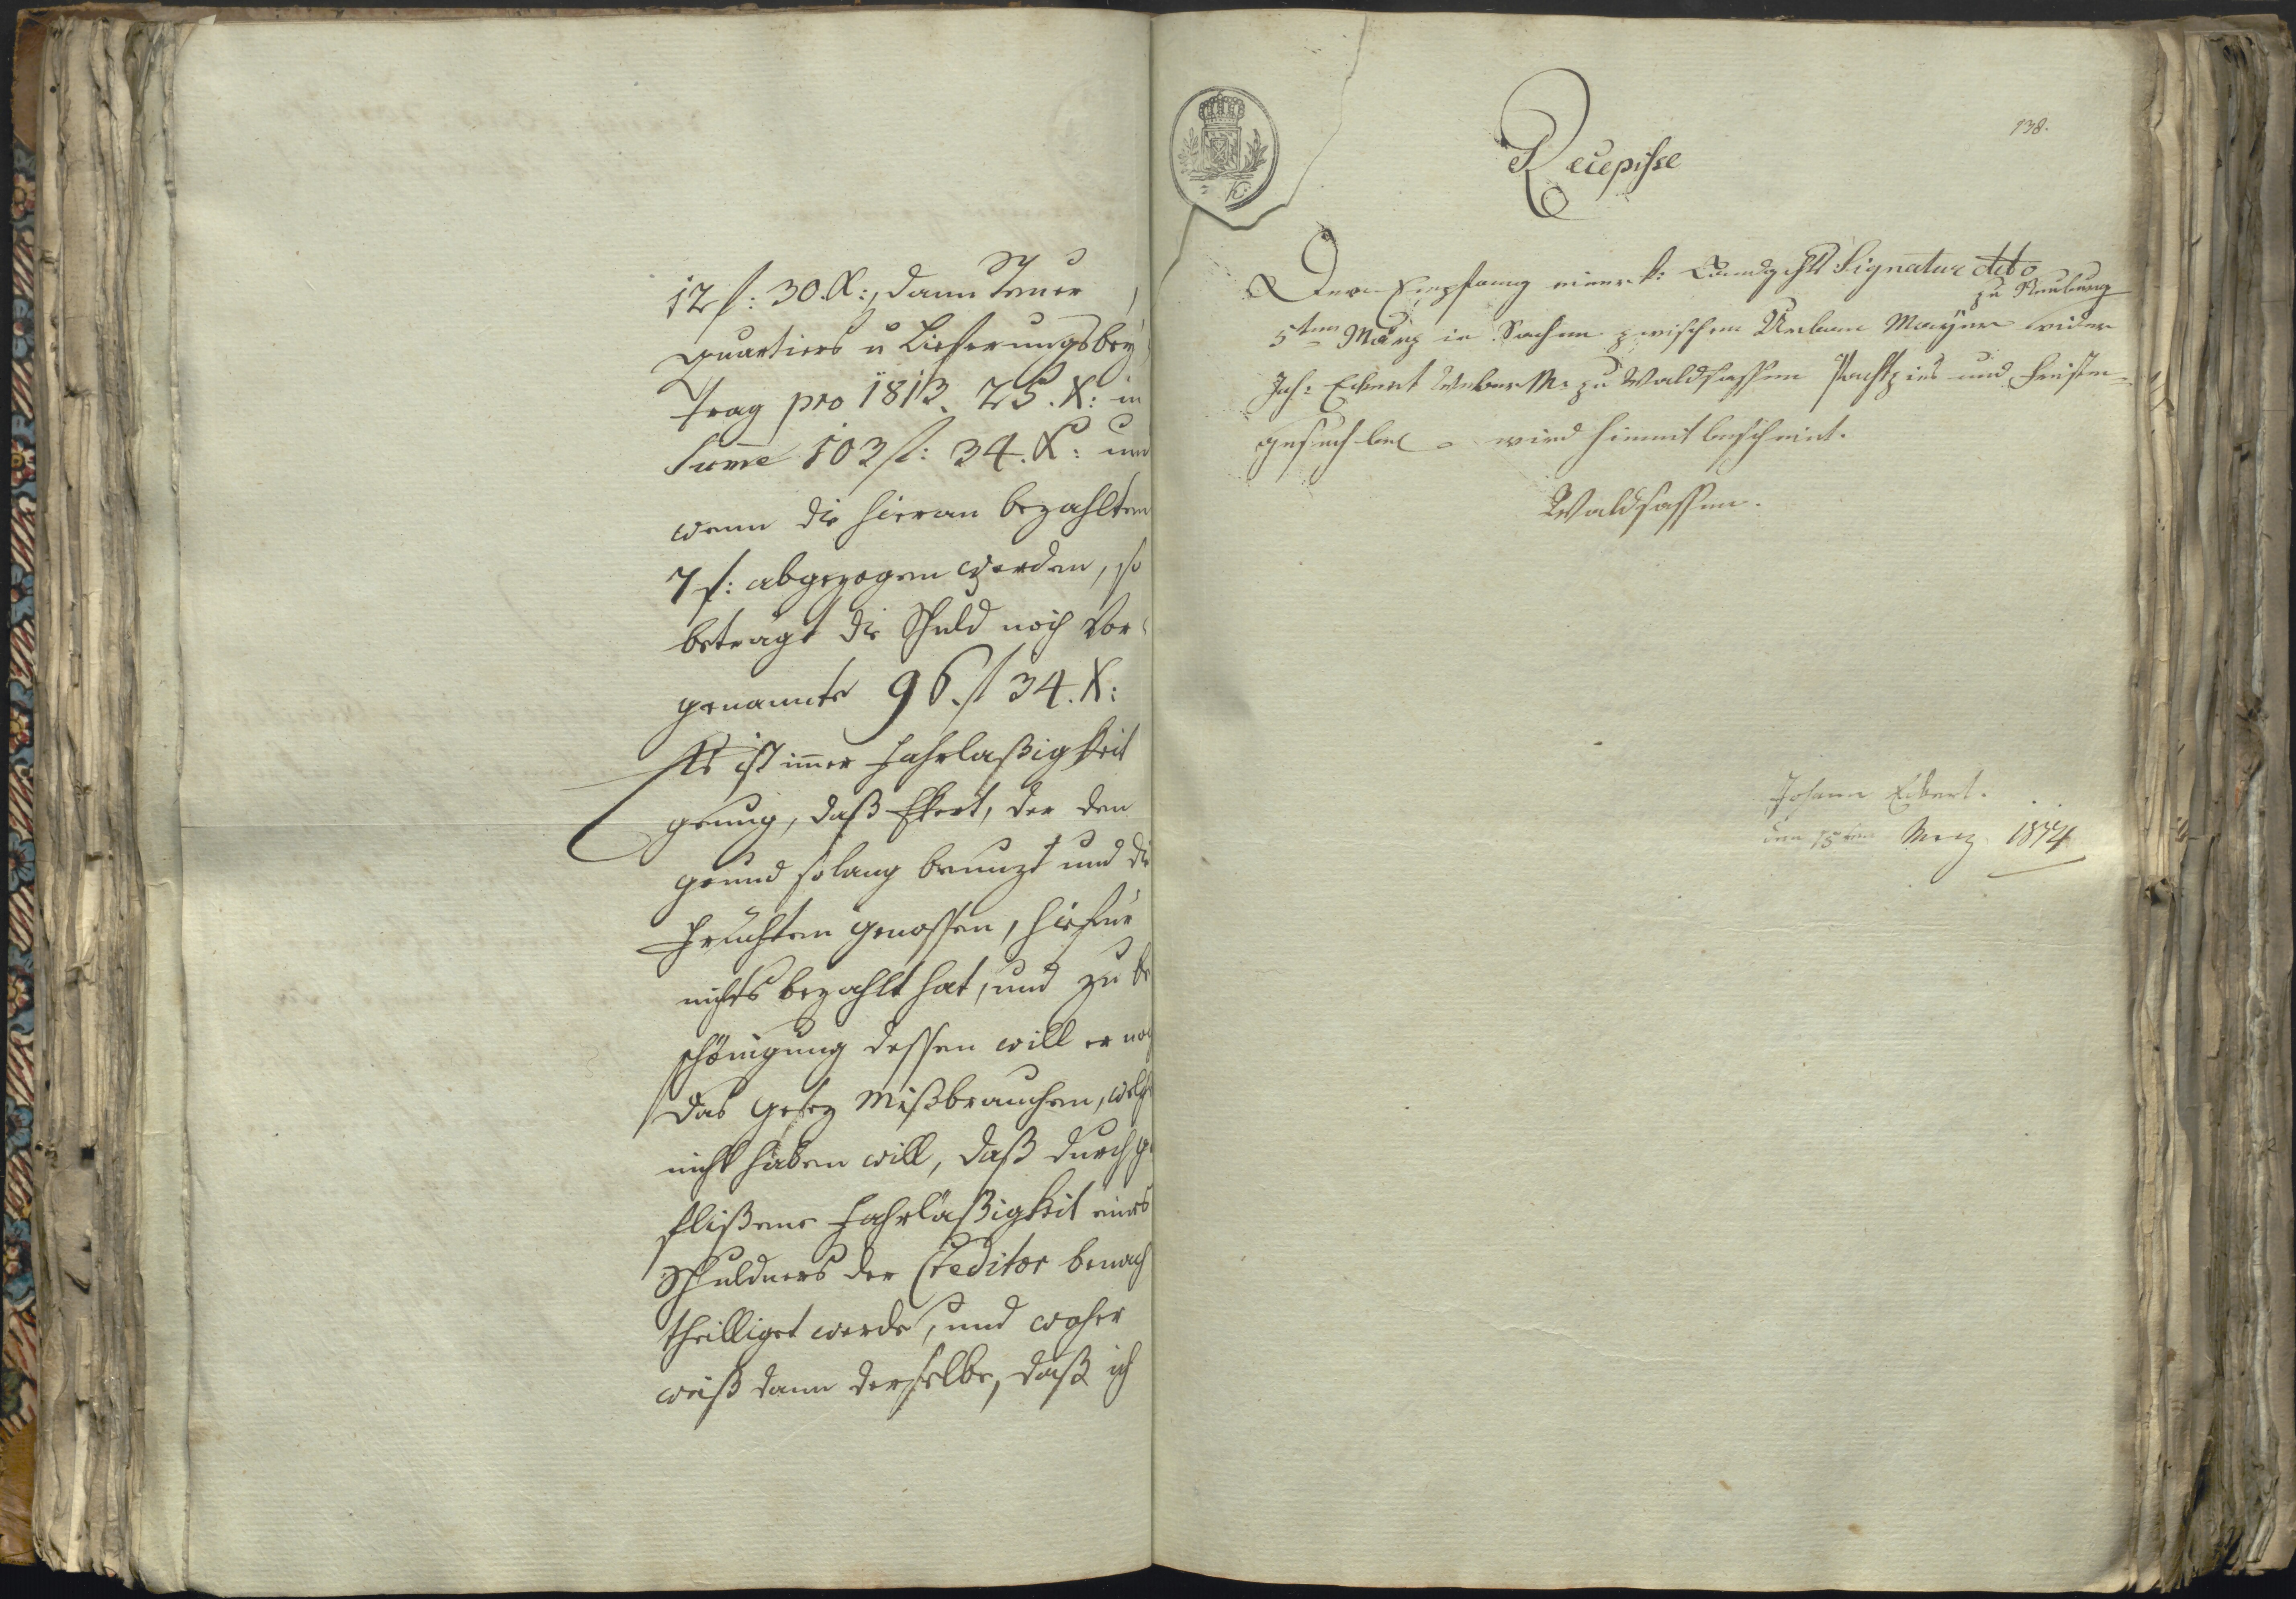 12 f: 30. X:, dann Steuer
quartiers u Lieferungsbey
trag pro 1813. 25. X: in
Suma 103 f: 34. X: und
wenn die hieran bezahlten
7 f: abgezogen werden, so
beträgt die Schuld noch vor-
genannte 96. f 34. X:
Es ist immer Fahrlaßigkeit
genug, daß Ekert, der den
grund so lang benuzt und die
Früchten genossen, hiefür
nichts bezahlt hat, und zu be
schönigung dessen will er noch
das Gesez Mißbrauchen, welches
nicht haben will, daß durch ge
flißene Fahrläßigkeit eines
Schuldners der Creditor benach
theilliget werde, und woher
weiß dann derselbe, daß ich
138.
Recepisse
Den Empfang einer k: Landgchtl Signatur dtto
zu Neuburg
5ten März in Sachen zwischen Urban Mayer wider
Joh: Eckert Weber M. zu Waldsassen Pachtzins und Fristen-
gesuch bel wird hiemit bescheint.
Waldsassen.
Johann Eckert.
den 15ten Merz 1814